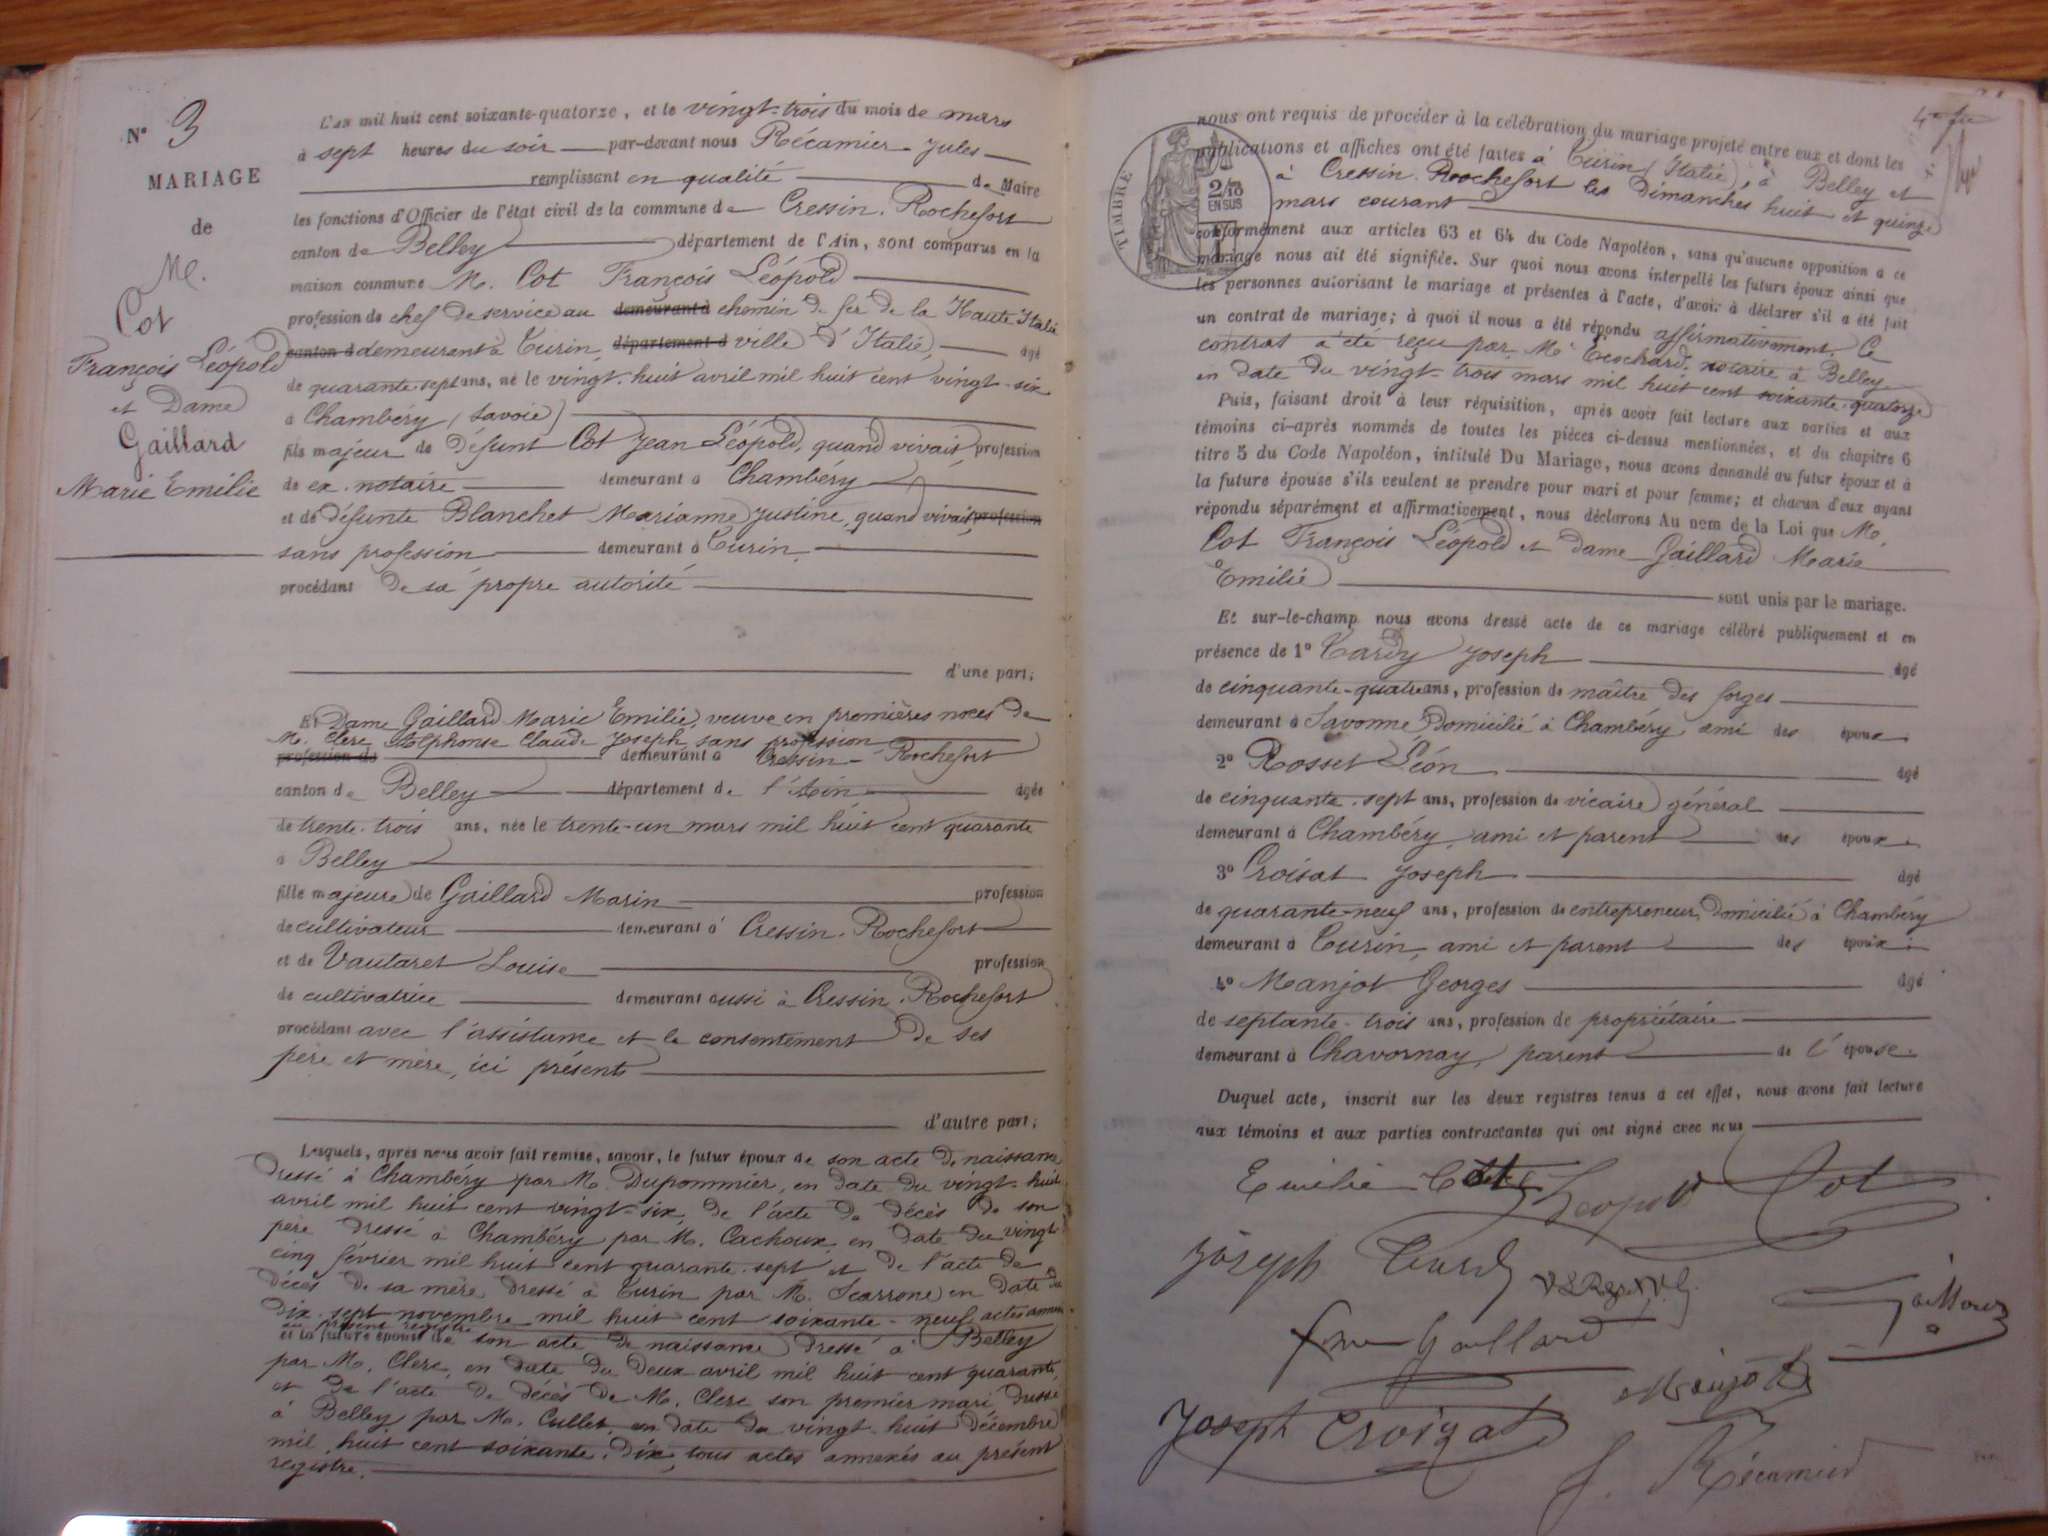 N° 3
MARIAGE
de
M.
Cot
François Léopold
et Dame
Gaillard
Marie Emilie
L'an mil huit cent soixante-quatorze, et le vingt-trois du mois de mars
à sept heures du soir par-devant nous Récamier Jules
remplissant en qualité de Maire
les fonctions d'Officier de l'état civil de la commune de Cressin-Rochefort
canton de Belley département de l'Ain, sont comparus en la
maison commune M. Cot François Léopold
profession de chef de service au demeurant à chemin de fer de la Haute Italie
canton d demeurant à Turin, département d ville d'Italie, âgé
de quarante-sept ans, né le vingt-huit avril mil huit cent vingt-six
à Chambéry (Savoie)
fils majeur de défunt Cot Jean Léopold, quand vivait, profession
de ex-notaire demeurant à Chambéry
et de défunte Blanchet Marianne Justine, quand vivait, profession
sans profession demeurant à Turin
procédant de sa propre autorité
d'une part;
Et Dame Gaillard Marie Emilie, veuve en premières noces de
M. Clerc Alphonse Claude Joseph, sans profession
profession de demeurant à Cressin-Rochefort
canton de Belley département de l'Ain âgée
de trente-trois ans, née le trente-un mars mil huit cent quarante
à Belley
fille majeure de Gaillard Marin profession
de cultivateur demeurant à Cressin-Rochefort
et de Vautaret Louise profession
de cultivatrice demeurant aussi à Cressin-Rochefort
procédant avec l'assistance et le consentement de ses
père et mère, ici présents
d'autre part;
Lesquels, après nous avoir fait remise, savoir, le futur époux de son acte de naissance
dressé à Chambéry par M. Dupommier, en date du vingt-huit
avril mil huit cent vingt-six, de l'acte de décès de son
père dressé à Chambéry par M. Cachoux, en date du vingt
cinq février mil huit cent quarante-sept et de l'acte de
décès de sa mère dressé à Turin par M. Scarrone en date du
dix-sept novembre mil huit cent soixante-neuf actes
au présent registre
et la future épouse de son acte de naissance dressé à Belley
par M. Clerc, en date du deux avril mil huit cent quarante,
et de l'acte de décès de M. Clerc son premier mari, dressé
à Belley par M. Cullet, en date du vingt-huit décembre
mil huit cent soixante-dix, tous actes annexés au présent
registre.
TIMBRE
2/10
EN SUS
nous ont requis de procéder à la célébration du mariage projeté entre eux et dont les
publications et affiches ont été faites à Turin (Italie), à Belley et
à Cressin-Rochefort les Dimanches huit et quinze
mars courant
conformément aux articles 63 et 64 du Code Napoléon, sans qu'aucune opposition à ce
mariage nous ait été signifiée. Sur quoi nous avons interpellé les futurs époux ainsi que
les personnes autorisant le mariage et présentes à l'acte, d'avoir à déclarer s'il a été fait
un contrat de mariage; à quoi il nous a été répondu affirmativement. Ce
contrat a été reçu par Me Trochard, notaire à Belley
en date du vingt-trois mars mil huit cent soixante-quatorze
Puis, faisant droit à leur réquisition, après avoir fait lecture aux parties et aux
témoins ci-après nommés de toutes les pièces ci-dessus mentionnées, et du chapitre 6
titre 5 du Code Napoléon, intitulé Du Mariage, nous avons demandé au futur époux et à
la future épouse s'ils veulent se prendre pour mari et pour femme; et chacun d'eux ayant
répondu séparément et affirmativement, nous déclarons Au nom de la Loi que M.
Cot François Léopold et dame Gaillard Marie
Emilie
sont unis par le mariage.
Et sur-le-champ nous avons dressé acte de ce mariage célébré publiquement et en
présence de 1° Tardy Joseph âgé
de cinquante-quatre ans, profession de maître des forges
demeurant à Savonne Domicilié à Chambéry ami des époux
2° Rosset Léon âgé
de cinquante-sept ans, profession de vicaire général
demeurant à Chambéry, ami et parent des époux
3° Croisat Joseph âgé
de quarante-neuf ans, profession de entrepreneur, domicilié à Chambéry
demeurant à Turin, ami et parent des époux
4° Manjot Georges âgé
de septante-trois ans, profession de propriétaire
demeurant à Chavornay, parent de l'épouse.
Duquel acte, inscrit sur les deux registres tenus à cet effet, nous avons fait lecture
aux témoins et aux parties contractantes qui ont signé avec nous
Emilie Cot Léopold Cot
Joseph Tardy
Gaillard
Gaillard
Manjot
Joseph Croizat
J. Récamier